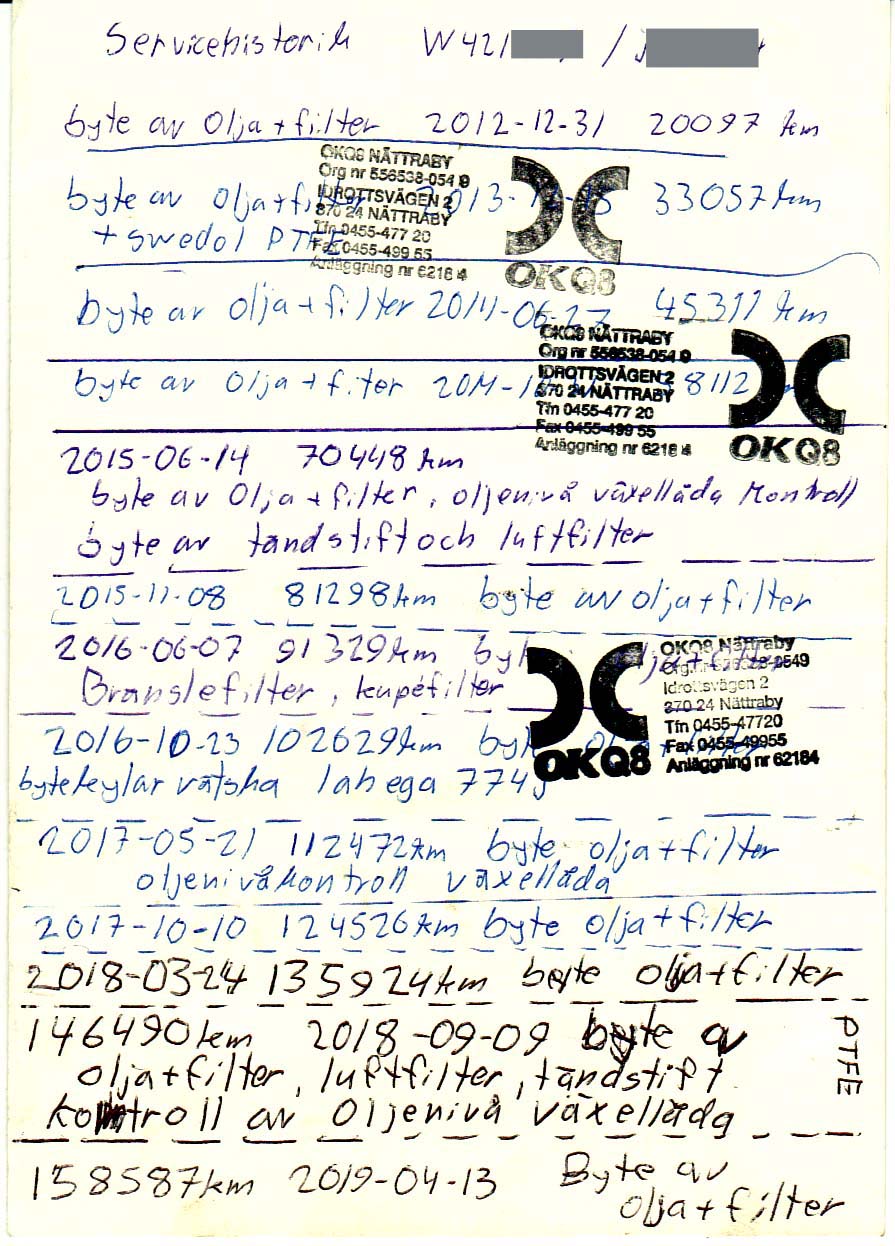 Servicehistorik W421 /
byte av Olja + filter 2012-12-31 20097 km
OKQ8 NÄTTRABY
Org nr 556538-054 9
IDROTTSVÄGEN 2
370 24 NÄTTRABY
Tfn 0455-477 20
Fax 0455-499 55
Anläggning nr 6218 4
OKQ8
byte av Olja + filter 2013-12- 33057 km
+ swedol PTFE
byte av olja + filter 2014-06-27 45311 km
OKQ8 NÄTTRABY
Org nr 556538-054 9
IDROTTSVÄGEN 2
370 24 NÄTTRABY
Tfn 0455-477 20
Fax 0455-499 55
Anläggning nr 6218 4
OKQ8
byte av Olja + filter 2014- 8112
2015-06-14 70448 km
byte av Olja + filter, oljenivå växellåda Kontroll
byte av tändstift och luftfilter
2015-11-08 81298 km byte av olja + filter
2016-06-07 91329 km byte olja + filter
Bränslefilter, kupéfilter
OKQ8 Nättraby
Org.nr 556538-0549
Idrottsvägen 2
370 24 Nättraby
Tfn 0455-47720
Fax 0455-49955
Anläggning nr 62184
OKQ8
2016-10-23 102629 km byte olja + filter
byte kylar vätska lahega 774
2017-05-21 112472 km byte olja + filter
oljenivåkontroll växellåda
2017-10-10 124526 km byte olja + filter
2018-03-24 135924 km byte olja + filter
146490 km 2018-09-09 byte av
PTFE
olja + filter, luftfilter, tändstift
Kontroll av Oljenivå växellåda
158587 km 2019-04-13 Byte av
olja + filter